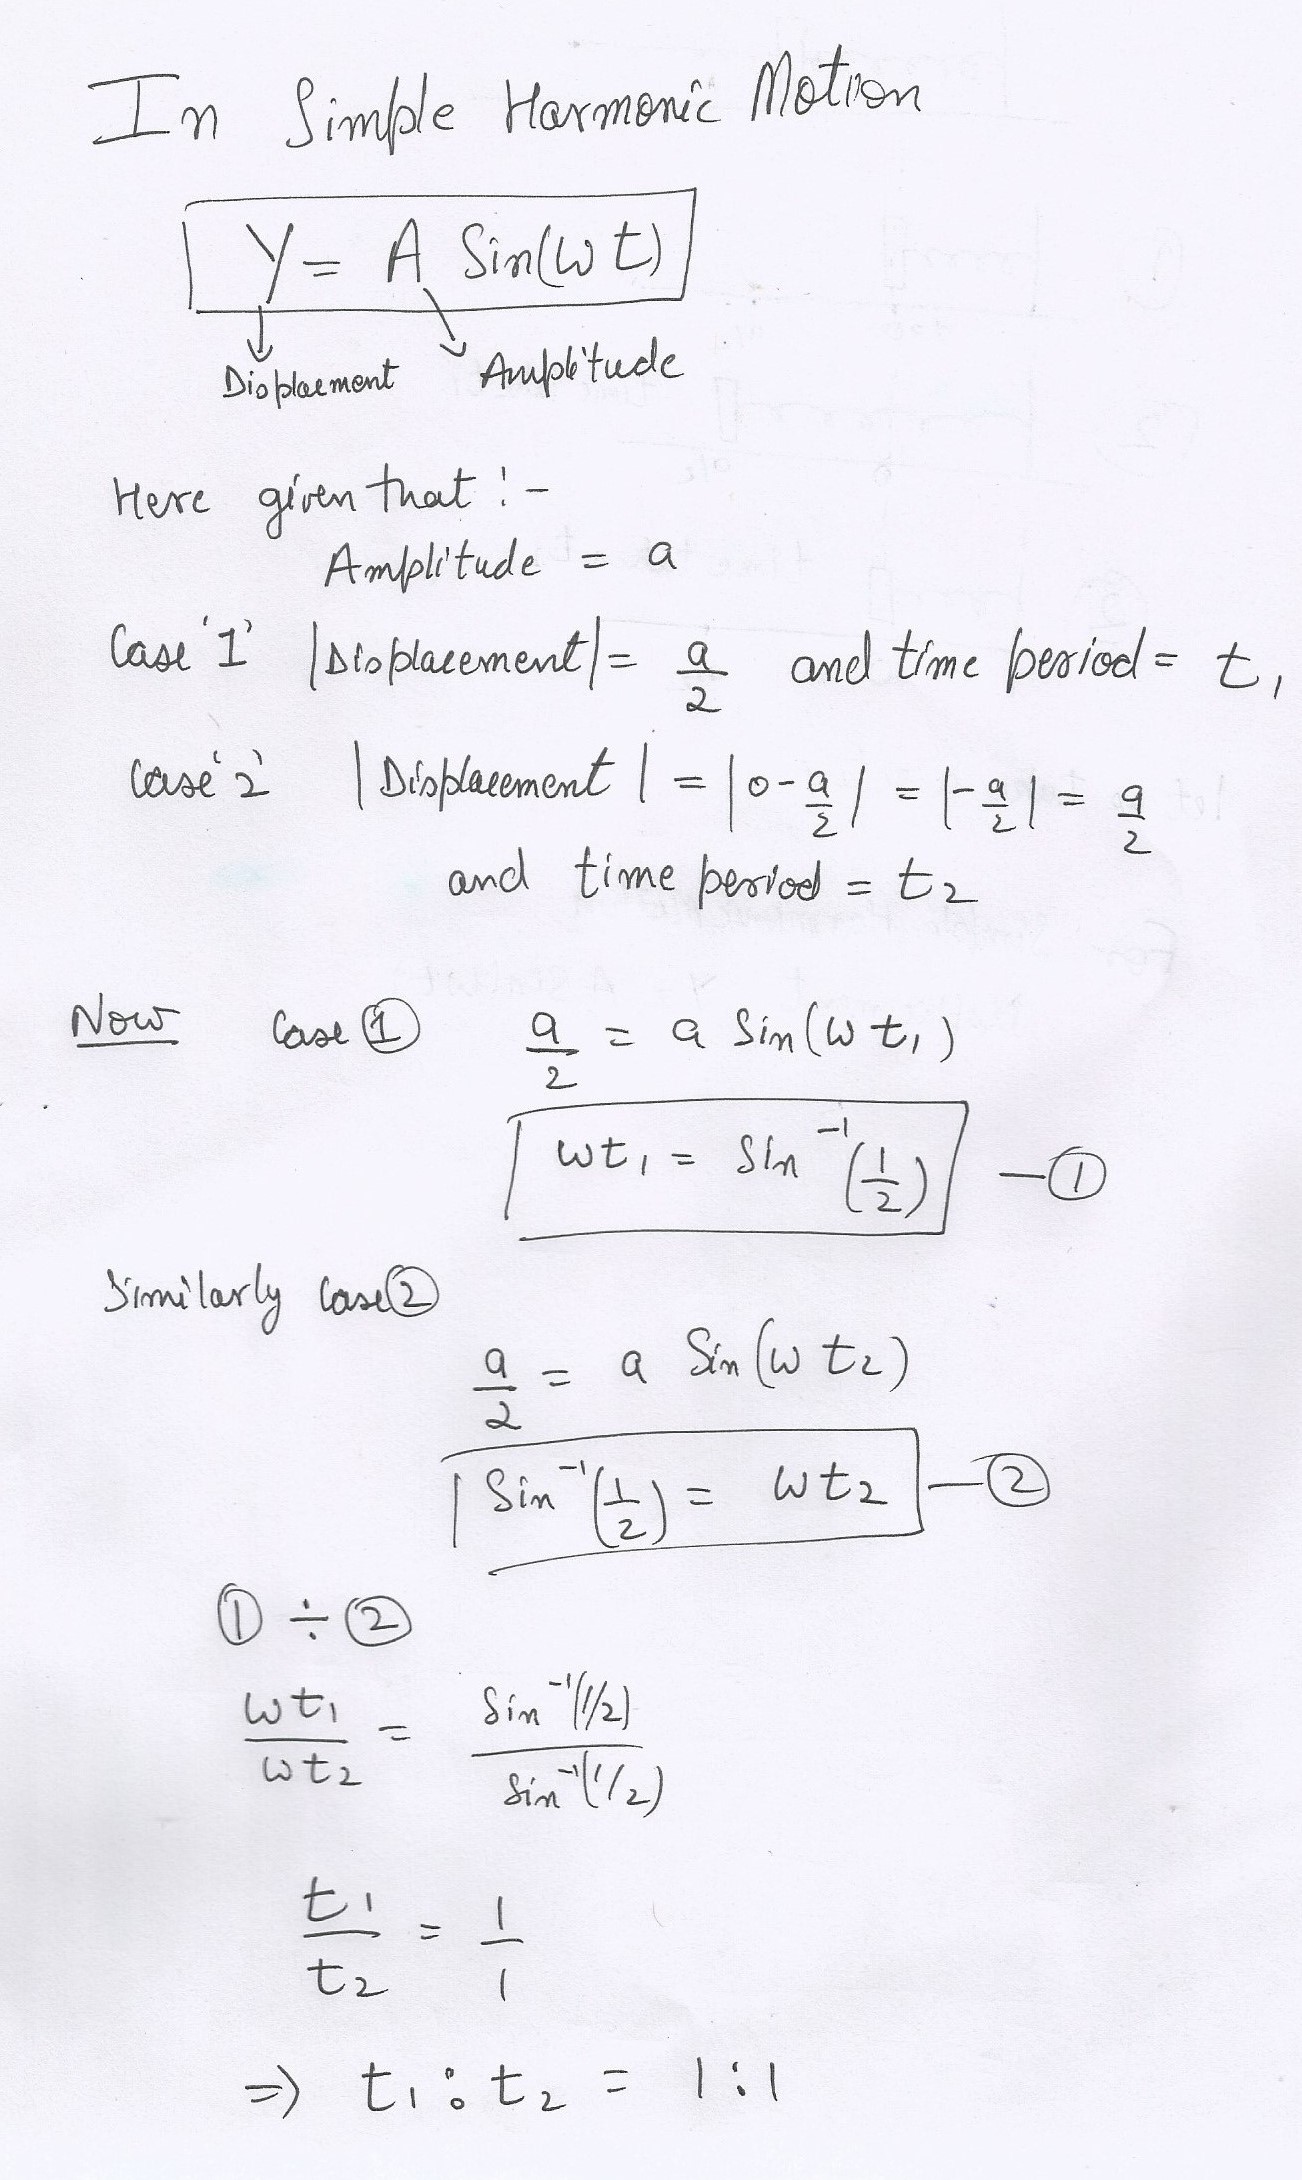 In Simple Harmonic Motion
Y = A Sin(ωt)
Displacement Amplitude
Here given that :-
Amplitude = a
Case '1' |Displacement| = a/2 and time period = t₁
Case '2' |Displacement| = |0 - a/2| = |-a/2| = a/2
and time period = t₂
Now Case ① a/2 = a Sin(ωt₁)
ωt₁ = Sin⁻¹(1/2) — ①
Similarly Case ②
a/2 = a Sin(ωt₂)
Sin⁻¹(1/2) = ωt₂ — ②
① ÷ ②
ωt₁/ωt₂ = Sin⁻¹(1/2)/Sin⁻¹(1/2)
t₁/t₂ = 1/1
⇒ t₁ : t₂ = 1 : 1